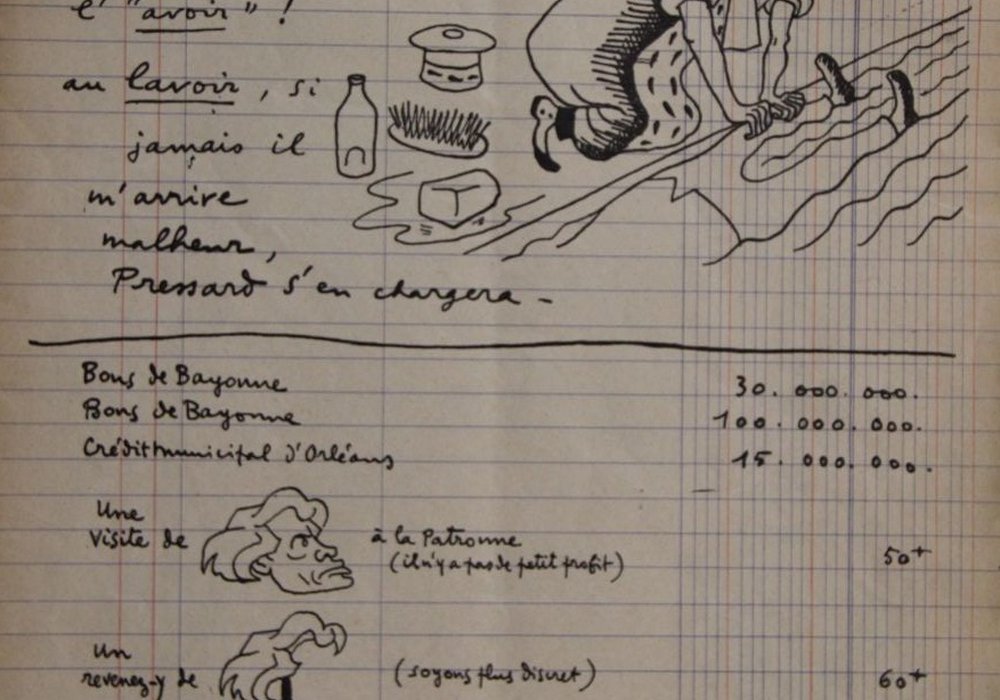 l' "avoir" !
au lavoir, si
jamais il
m'arrive
malheur,
Pressard s'en chargera -
Bons de Bayonne 30. 000. 000.
Bons de Bayonne 100. 000. 000.
Crédit municipal d'Orléans 15. 000. 000.
Une
visite de à la Patronne
(il n'y a pas de petit profit) 50+
Un
revenez-y de (soyons plus discret) 60+